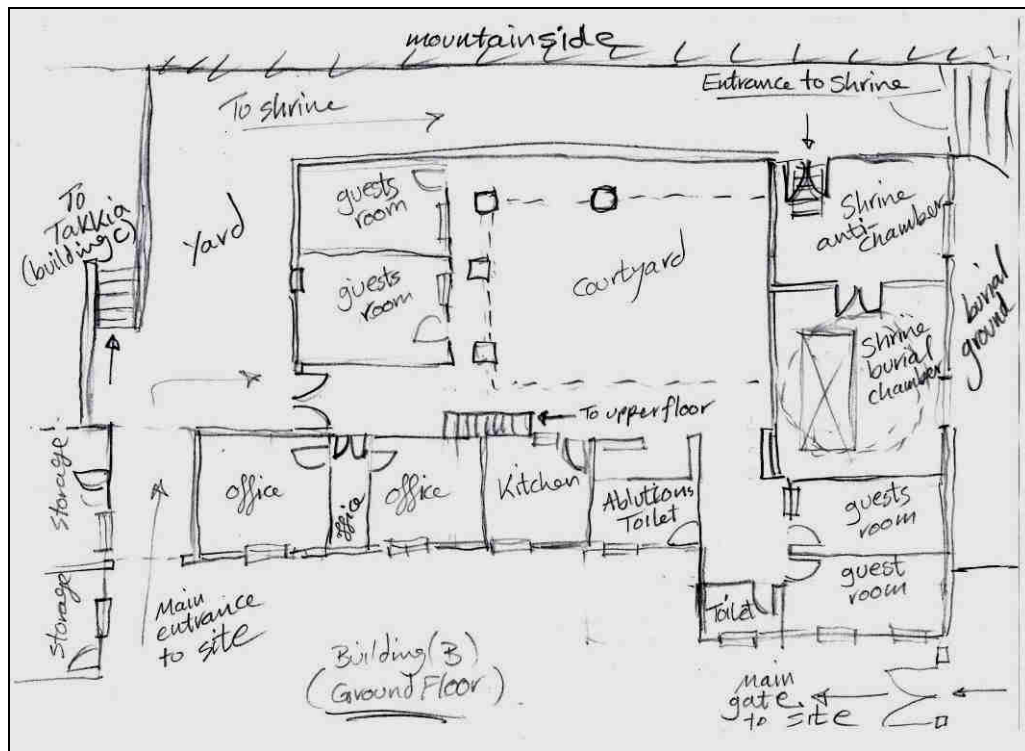 mountainside
To shrine
Entrance to Shrine
To
Takkia
(building C)
Yard
guests
room
guests
room
courtyard
Shrine
anti-
chamber
burial
ground
Shrine
burial
chamber
To upper floor
Storage
Storage
office
office
office
Kitchen
Ablutions
Toilet
guests
room
guest
room
Toilet
Main
entrance
to site
Building (B)
(Ground Floor)
main
gate
to site